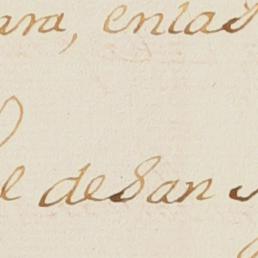 ara, enlas
e de San